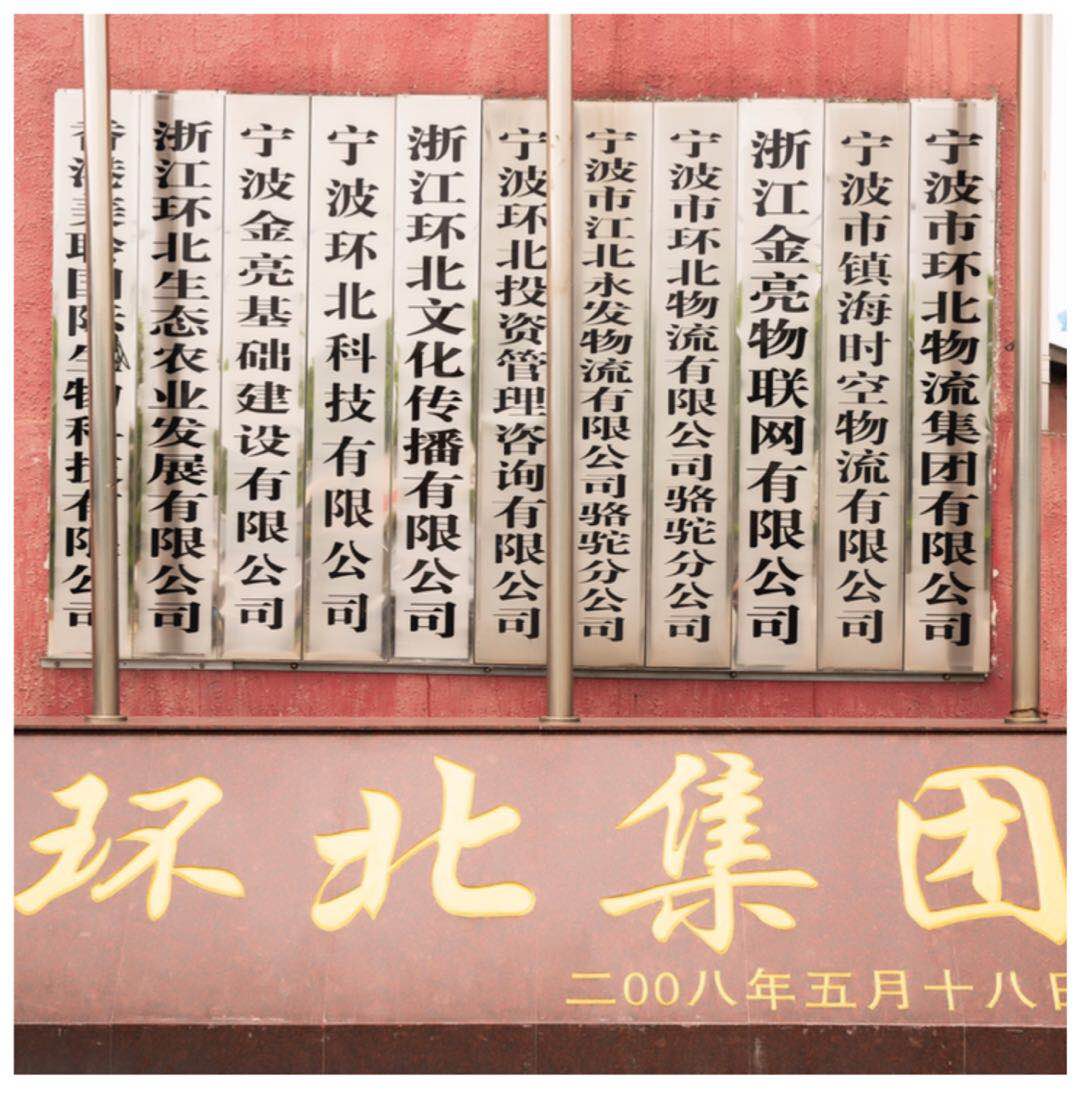 宁波市环北物流集团有限公司
宁波市镇海时空物流有限公司
浙江金亮物联网有限公司
宁波市环北物流有限公司骆驼分公司
宁波市江北永发物流有限公司骆驼分公司
宁波环北投资管理咨询有限公司
浙江环北文化传播有限公司
宁波环北科技有限公司
宁波金亮基础建设有限公司
浙江环北生态农业发展有限公司
香港美国际生物科技有限公司
环北集团
二00八年五月十八日